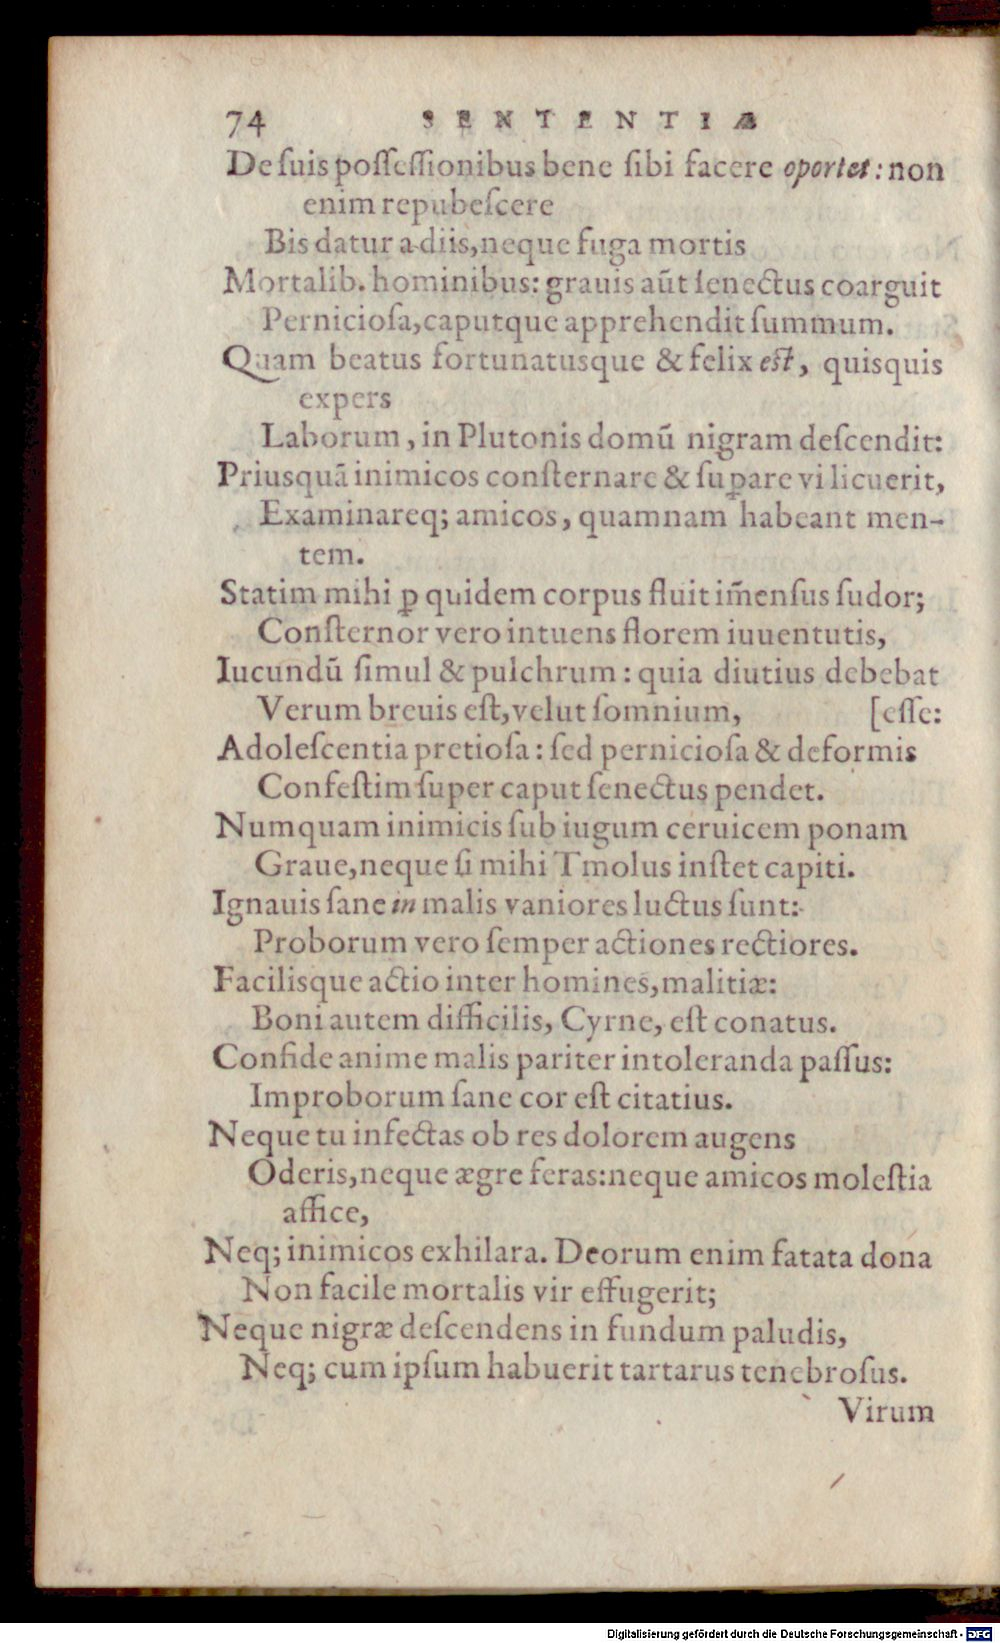 74 SENTENTIÆ
De ſuis poſſeſſionibus bene ſibi facere oportet: non
enim repubeſcere
Bis datur a diis, neque fuga mortis
Mortalib. hominibus: grauis aūt ſenectus coarguit
Pernicioſa, caputque apprehendit ſummum.
Quam beatus fortunatusque & felix est, quisquis
expers
Laborum, in Plutonis domū nigram deſcendit:
Priusquā inimicos conſternare & ſuꝑare vi licuerit,
Examinareq; amicos, quamnam habeant men-
tem.
Statim mihi ꝑ quidem corpus fluit im̃enſus ſudor;
Conſternor vero intuens florem iuuentutis,
Iucundū ſimul & pulchrum: quia diutius debebat
Verum breuis eſt, velut ſomnium, [eſſe:
Adoleſcentia pretioſa: ſed pernicioſa & deformis
Confeſtim ſuper caput ſenectus pendet.
Numquam inimicis ſub iugum ceruicem ponam
Graue, neque ſi mihi Tmolus inſtet capiti.
Ignauis ſane in malis vaniores luctus ſunt:
Proborum vero ſemper actiones rectiores.
Facilisque actio inter homines, malitiæ:
Boni autem difficilis, Cyrne, eſt conatus.
Confide anime malis pariter intoleranda paſſus:
Improborum ſane cor eſt citatius.
Neque tu infectas ob res dolorem augens
Oderis, neque ægre feras: neque amicos moleſtia
affice,
Neq; inimicos exhilara. Deorum enim fatata dona
Non facile mortalis vir effugerit;
Neque nigræ deſcendens in fundum paludis,
Neq; cum ipſum habuerit tartarus tenebroſus.
Virum
Digitalisierung gefördert durch die Deutsche Forschungsgemeinschaft - DFG